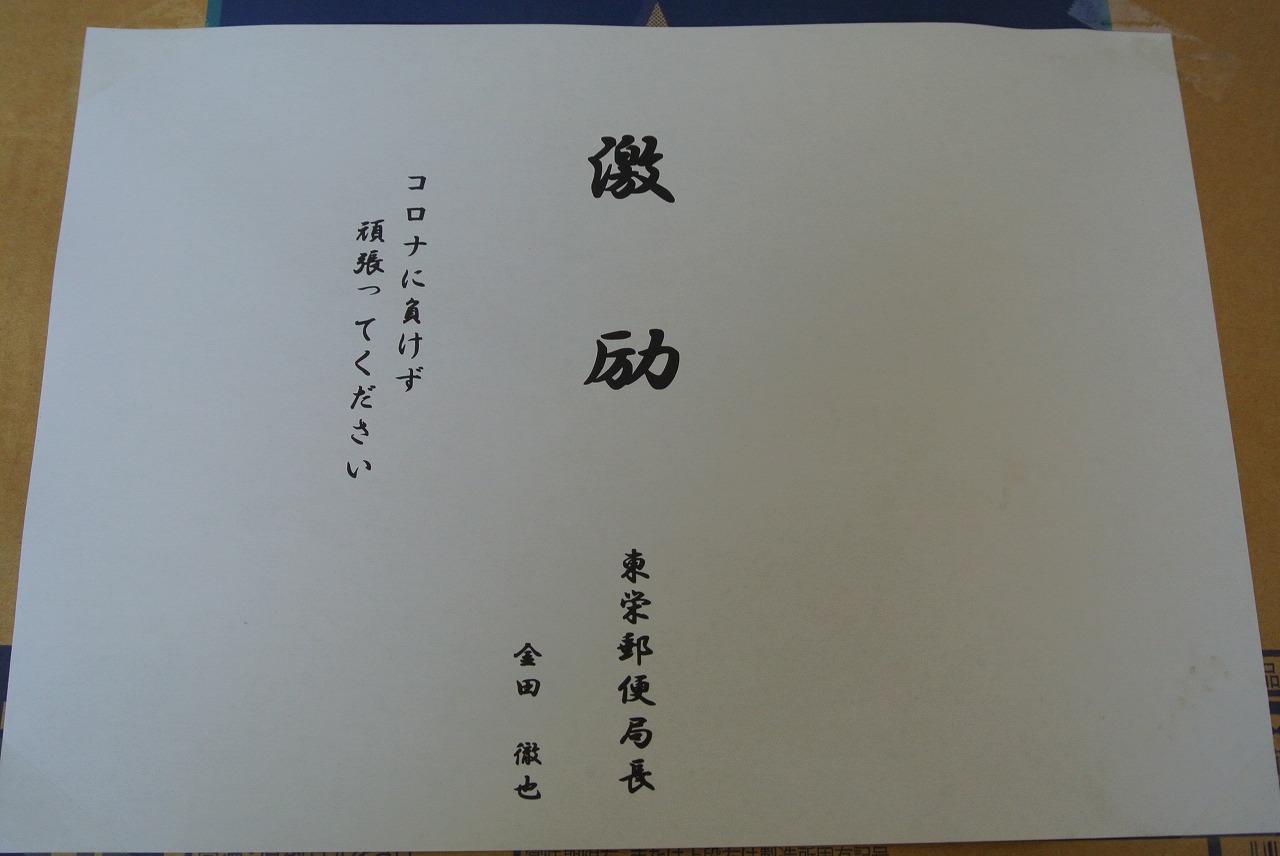 激励
東栄郵便局長
金田 徹也
コロナに負けず
頑張ってください